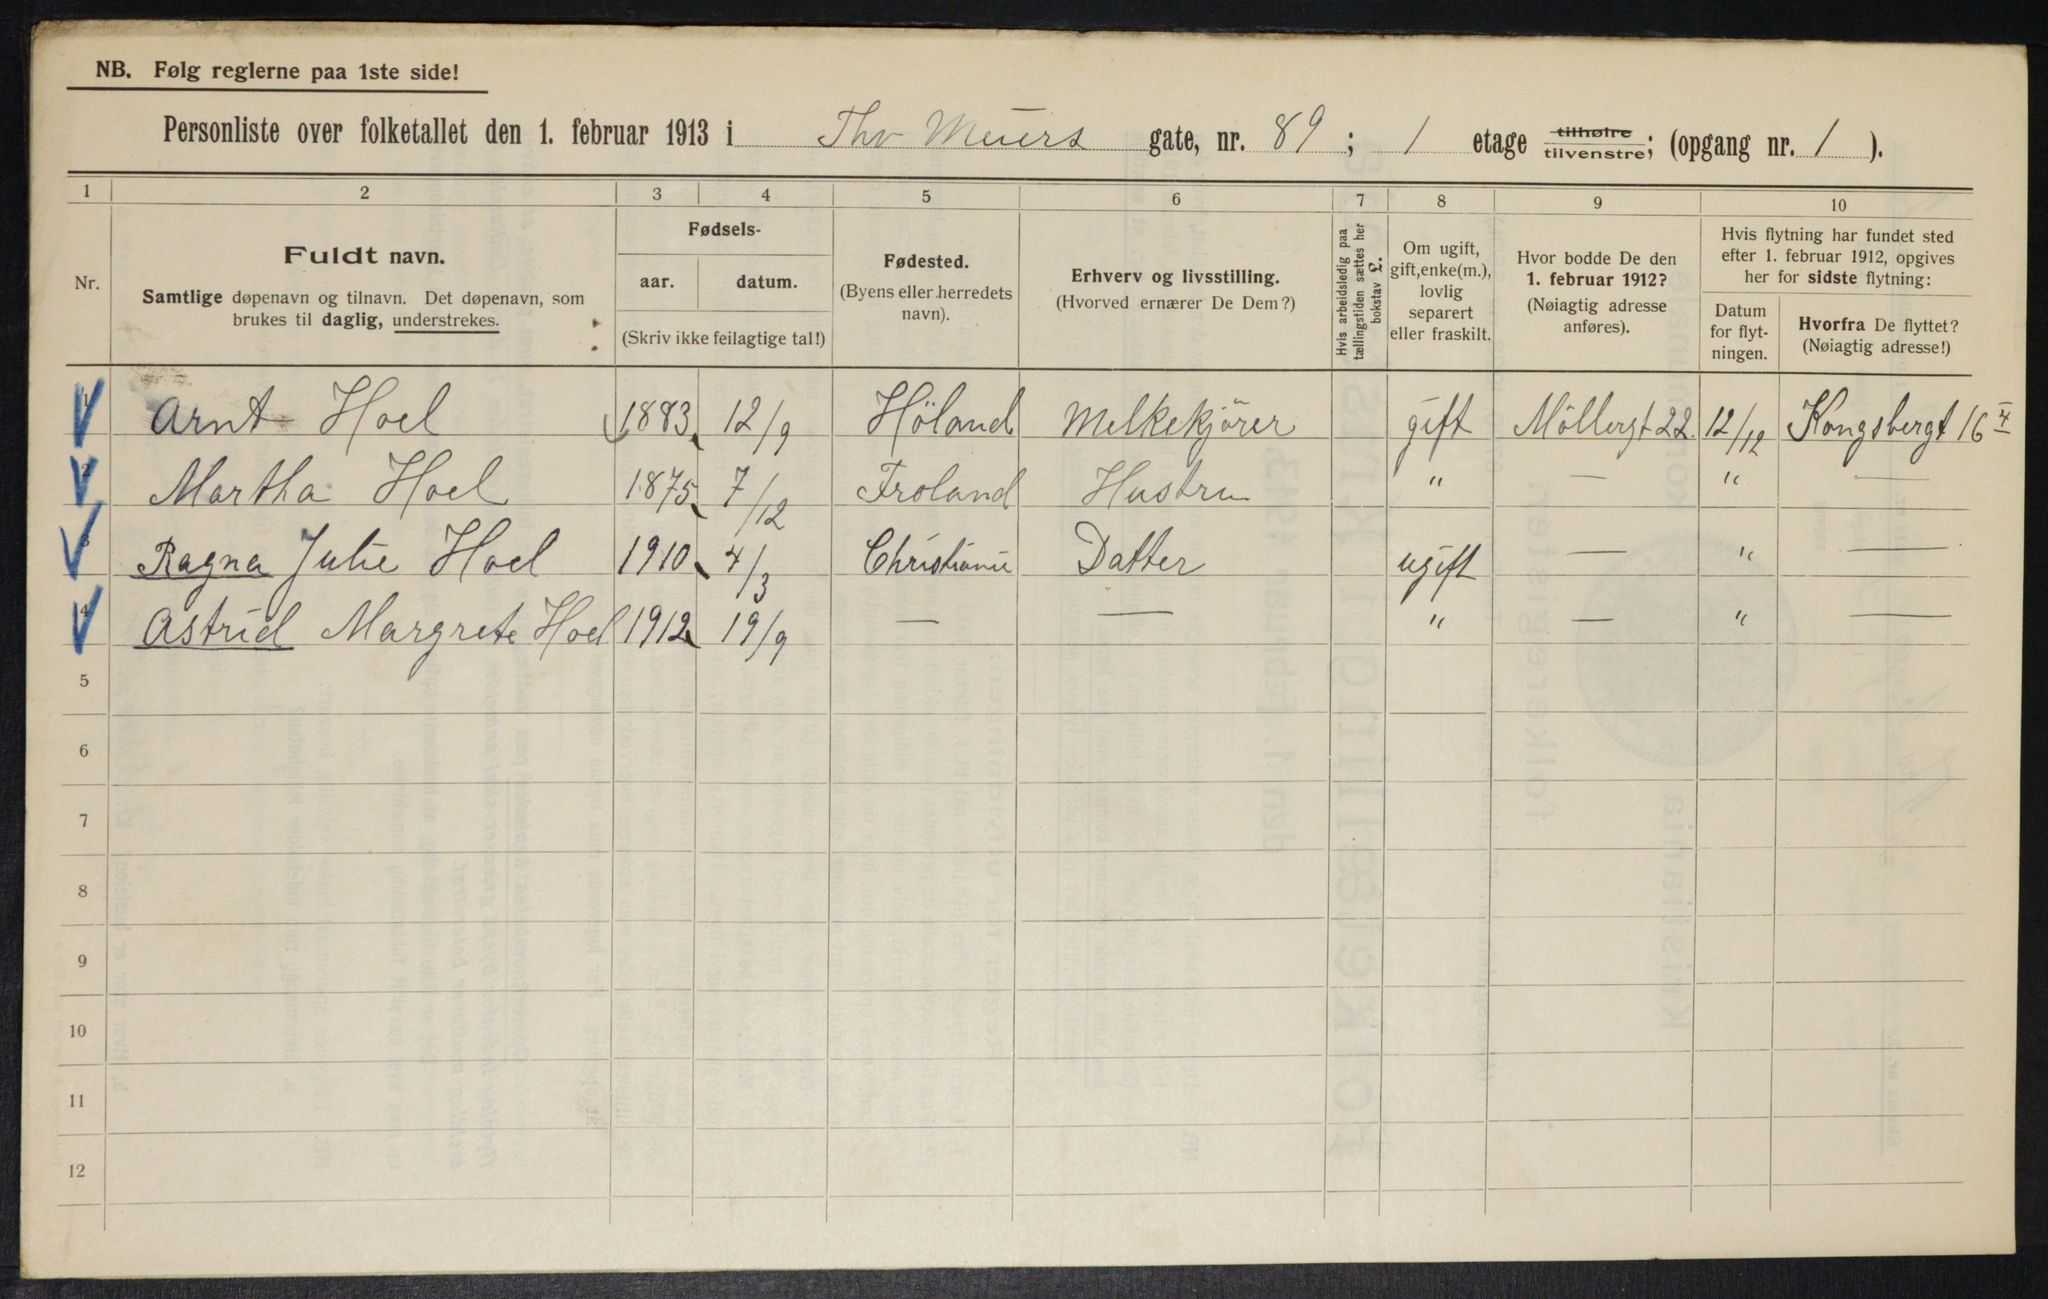 NB. Følg reglerne paa 1ste side!
Personliste over folketallet den 1. februar 1913 i Thv Meiers gate, nr. 89 ; 1 etage tilhøire tilvenstre; (opgang nr. 1 ).
1 2 3 4 5 6 7 8 9 10
Nr.
Fuldt navn.
Samtlige døpenavn og tilnavn. Det døpenavn, som
brukes til daglig, understrekes.
Fødsels-
aar. datum.
(Skriv ikke feilagtige tal!)
Fødested.
(Byens eller herredets
navn).
Erhverv og livsstilling.
(Hvorved ernærer De Dem?)
Hvis arbeidsledig paa
tællingstiden sættes her
bokstav L.
Om ugift,
gift, enke(m.),
lovlig
separert
eller fraskilt.
Hvor bodde De den
1. februar 1912?
(Nøiagtig adresse
anføres).
Hvis flytning har fundet sted
efter 1. februar 1912, opgives
her for sidste flytning:
Datum
for flyt-
ningen.
Hvorfra De flyttet?
(Nøiagtig adresse!)
1 Arnt Hoel 1883 12/9 Höland Melkekjörer gift Möllergt 22. 12/12 Kongsbergt 16 4
2 Martha Hoel 1875 7/12 Froland Hustru " — " —
3 Ragna Julie Hoel 1910 4/3 Christiania Datter ugift — " —
4 Astrid Margrete Hoel 1912 19/9 — — " — " —
5
6
7
8
9
10
11
12